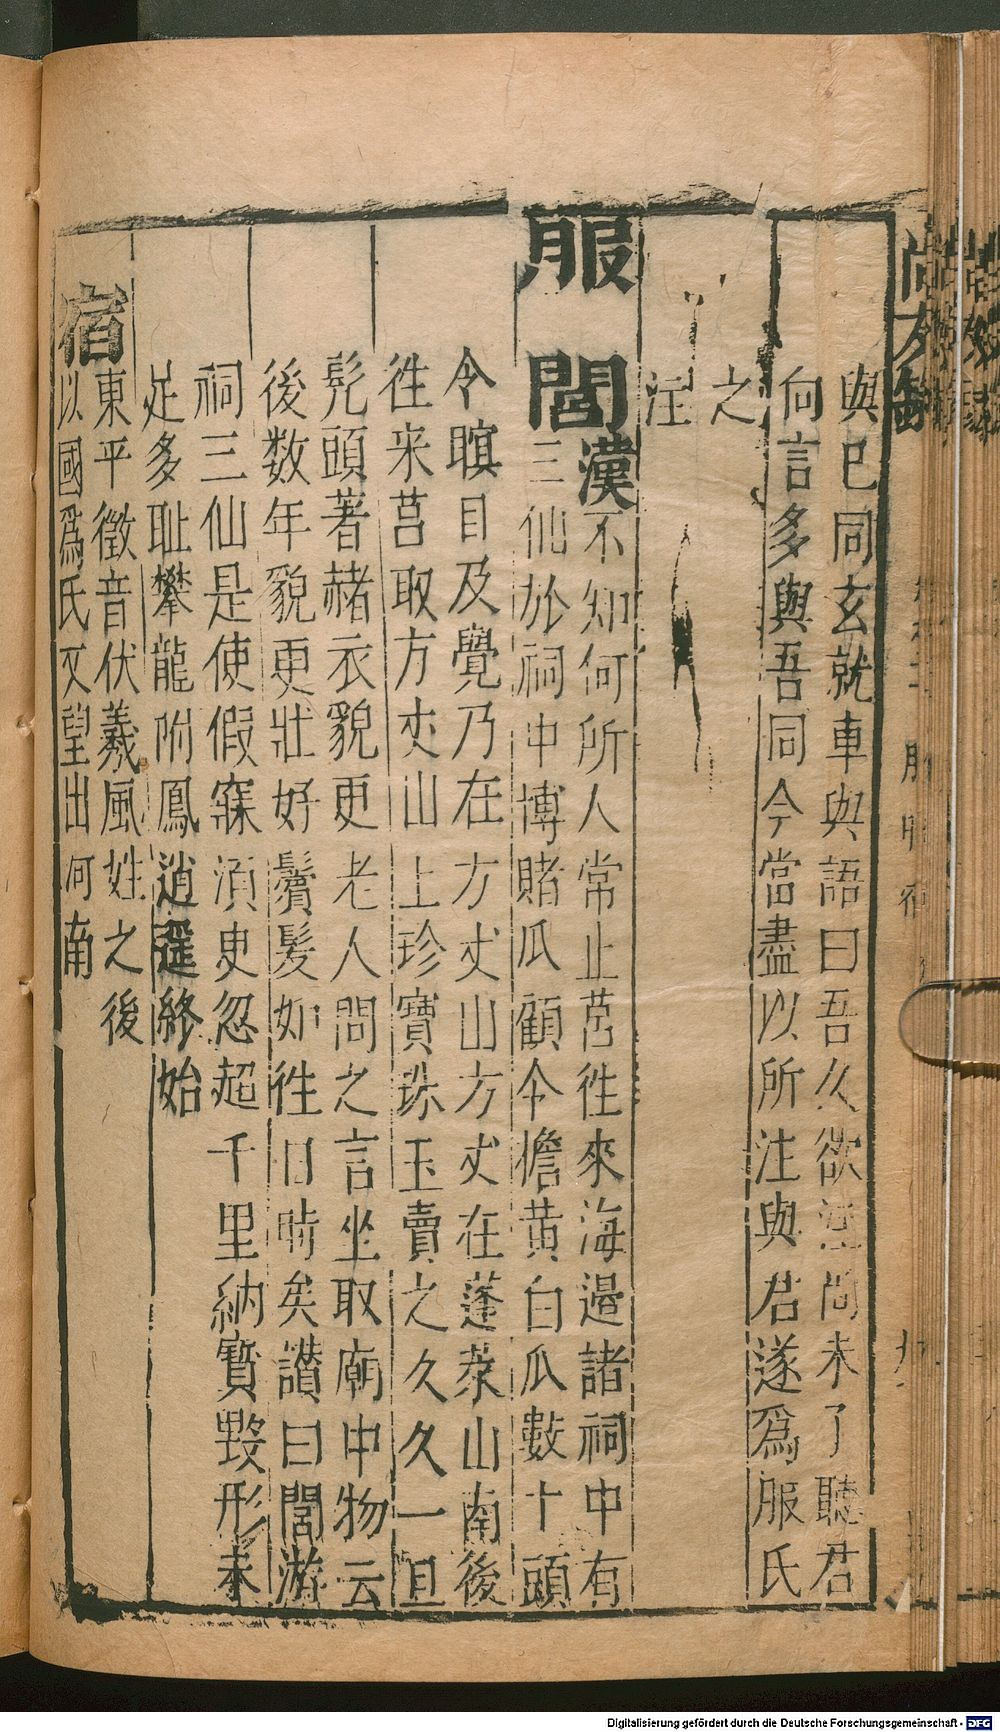 與已同玄就車與語曰吾久欲注尚未了聽君
向言多與吾同今當盡以所注與君遂爲服氏
之
注
服閭
漢不知何所人常止莒徃來海邉諸祠中有
三仙於祠中博賭瓜顧令檐黄白瓜數十頭
令瞑目及覺乃在方丈山方丈在蓬萊山南後
徃来莒取方丈山上珍寶珠玉賣之久久一旦
髠頭著赭衣貌更老人問之言坐取廟中物云
後数年貌更壯好鬢髪如徃日時矣讃曰閭游
祠三仙是使假寐湏臾忽超千里納寳毀形未
足多耻攀龍附鳳逍遥終始
宿
東平徵音伏羲風姓之後
以國爲氏又望出河南
尚友錄
Digitalisierung gefördert durch die Deutsche Forschungsgemeinschaft - DFG